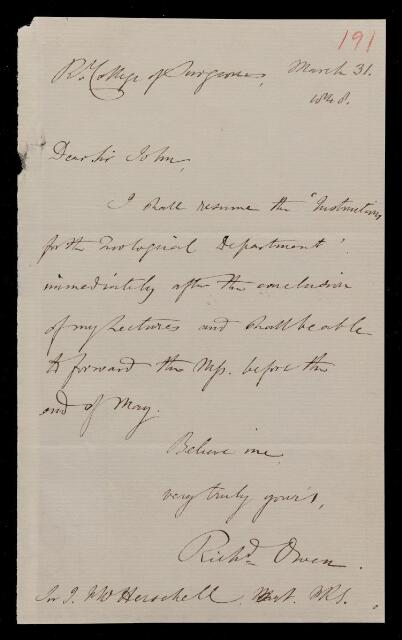 191
Rl. College of Surgeons, March 31.
1848.
Dear Sir John,
I shall resume the 'Instructions
for the Zoological Department'
immediately after the conclusion
of my Lectures and shall be able
to forward the Mss. before the
end of May.
Believe me
very truly your's,
Richd. Owen.
Sir J. F W Herschell, Bart. FRS.